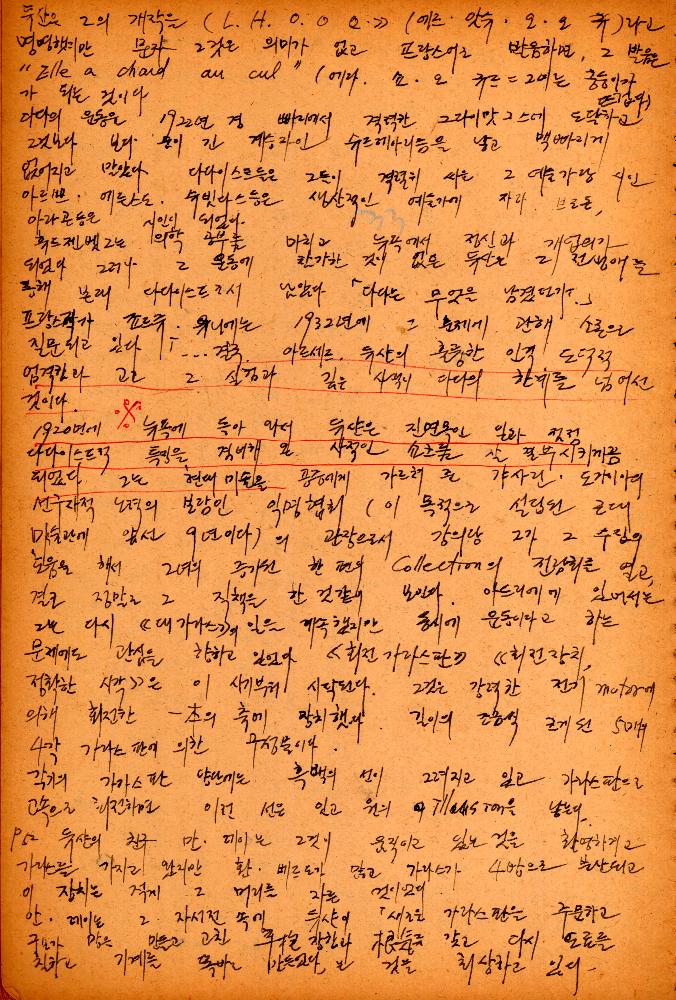 뒤샹은 그의 개작을 《L.H.O.O.Q.》(에르·앗슈·오·오·큐)라고
명명했지만 문자 그것은 의미가 없고 프랑스어로 발음하면, 그 발음은
"Elle a chaud au cul" (에라·쇼·오·큐르 = 그녀는 궁둥이가
뜨겁다)
가 되는 것이다
다다의 운동은 1922년경 빠리에서 격렬한 크라이맛그스에 도달하고
그것보다 보다 긴 계승자인 쉬르레아리즘을 낳고 맥빠지게
없어지고 말았다. 다다이스트들은 그들이 격렬히 싸운 그 예술가랑 시인
아르프·에른스트·쉬빗타스등은 생산적인 예술가에 자라 브르통,
아라공등은 시인이 되었다.
휴드젠벡크는 의학 공부를 마치고 뉴욕에서 정신과 개업의가
되었다 그러나 그 운동에 참가한 것이 없는 뒤샹은 그 전생애를
통해 본래 다다이스트로서 남았다 「다다는 무엇을 남겼던가?」
프랑스작가 죠르쥬·위니에는 1932년에 그 문제에 관해 스스로
질문되고 있다 「...결국, 마르세르·뒤샹의 훌륭한 인격 도덕적
엄격함과 고론 그 실험과 깊은 사색이 다다의 한계를 넘어선
것이다.
1920년에 뉴욕에 돌아와서 뒤샹은 진면목인 일과 컷정
다다이스트적 특징을 겸비해 온 사적인 쇼크를 잘 결부시키끔
되었었다. 그는 현대미술을 공중에게 가르쳐 준 캬사린·드라이아의
선구자적 노력의 보람인 익명협회 (이 목적으로 설립된 근대
미술관에 앞선 9년이다)의 관장으로서 강의랑 그가 그 수집의
도움을 해서 그녀의 증가된 한 편의 Collection의 전람회를 열고,
결코 정말로 그 직책을 한 것같이 보인다. 아뜨리에에 있어서는
그는 다시 《대가라스》의 일을 계속했지만 동시에 운동이라고 하는
문제에도 관심을 향하고 있었다 《회전가라스판》 《회전장치,
정확한 시각》은 이 시기부터 시작된다. 그것은 강력한 전기 motor에
의해 회전한 一本의 축에 장치했다. 길이의 조종석 크게 된 5매
4각 가라스판에 의한 구성물이다.
각기의 가라스판 양단에는 흑백의 선이 그려지고 있고 가라스판으로
고속으로 회전하면 이런 선은 있고 원의 illusion을 낳는다.
1920 뒤샹의 친구 만·레이는 그것이 움직이고 있는 것을 촬영하려고
가라스를 가지고 왔지만 환·베르트가 많고 가라스가 4방으로 분산되고
이 장치는 적게 그 머리를 자를 것이었다
만·레이는 그 자서전 속에 뒤샹이 「새로운 가라스판을 주문하고
구모가 망을 만들고 고친 푸념 강한과 根氣를 갖고 다시 도료를
칠하고 기계를 똑바로 만들었다」란 것을 회상하고 있다.